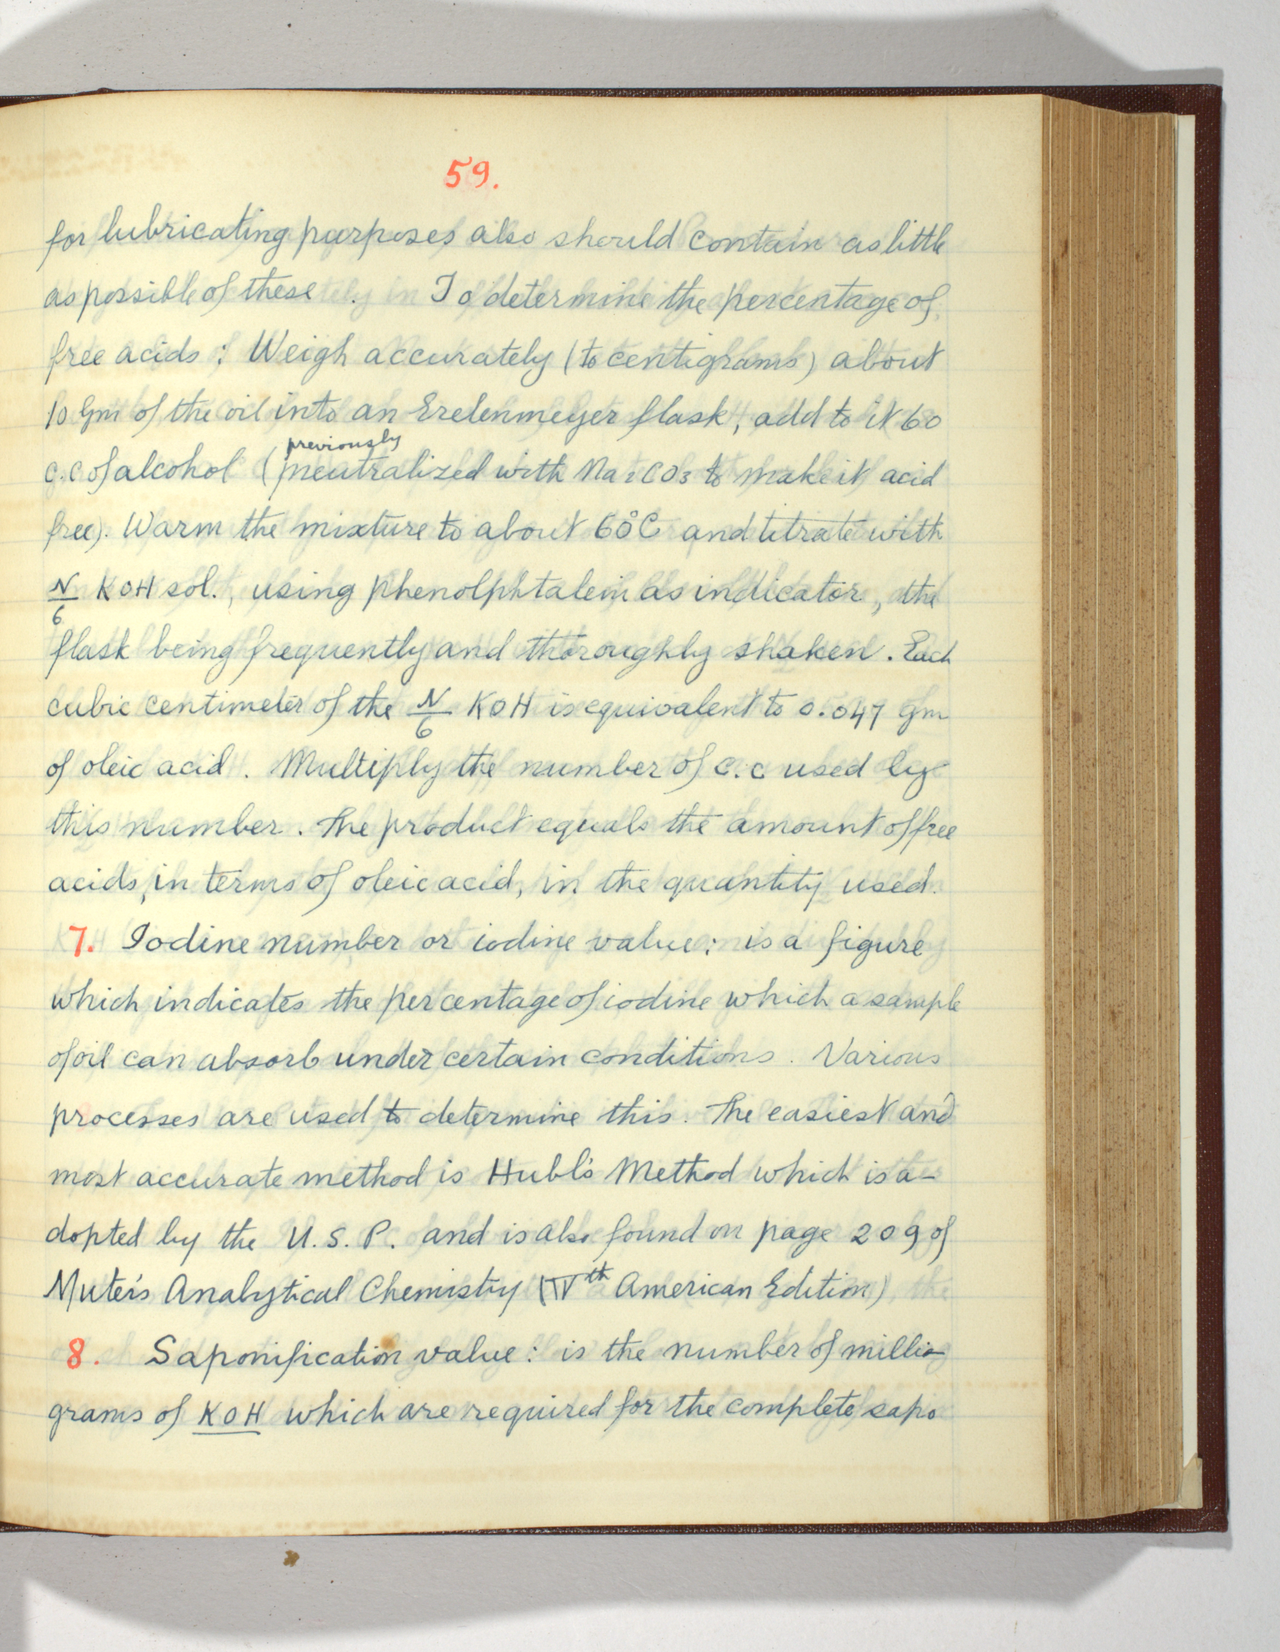 59.
for lubricating purposes also should contain as little
as possible of these. To determine the percentage of
free acids: Weigh accurately (to centigrams) about
10 Gm of the oil into an Erelenmeyer flask, add to it 60
previously
c.c of alcohol (neutralized with Na2CO3 to make it acid
free). Warm the mixture to about 60°C and titrate with
N/6 KOH sol., using phenolphtalein as indicator, the
flask being frequently and thoroughly shaken. Each
cubic centimeter of the N/6 KOH is equivalent to 0.047 Gm
of oleic acid. Multiply the number of c.c used by
this number. The product equals the amount of free
acids, in terms of oleic acid, in the quantity used.
7. Iodine number or iodine value: is a figure
which indicates the percentage of iodine which a sample
of oil can absorb under certain conditions. Various
processes are used to determine this. The easiest and
most accurate method is Hubl's Method which is a-
dopted by the U.S.P. and is also found on page 209 of
Muter's Analytical Chemistry (IVth American Edition)
8. Saponification value: is the number of milli-
grams of KOH which are required for the complete sapo